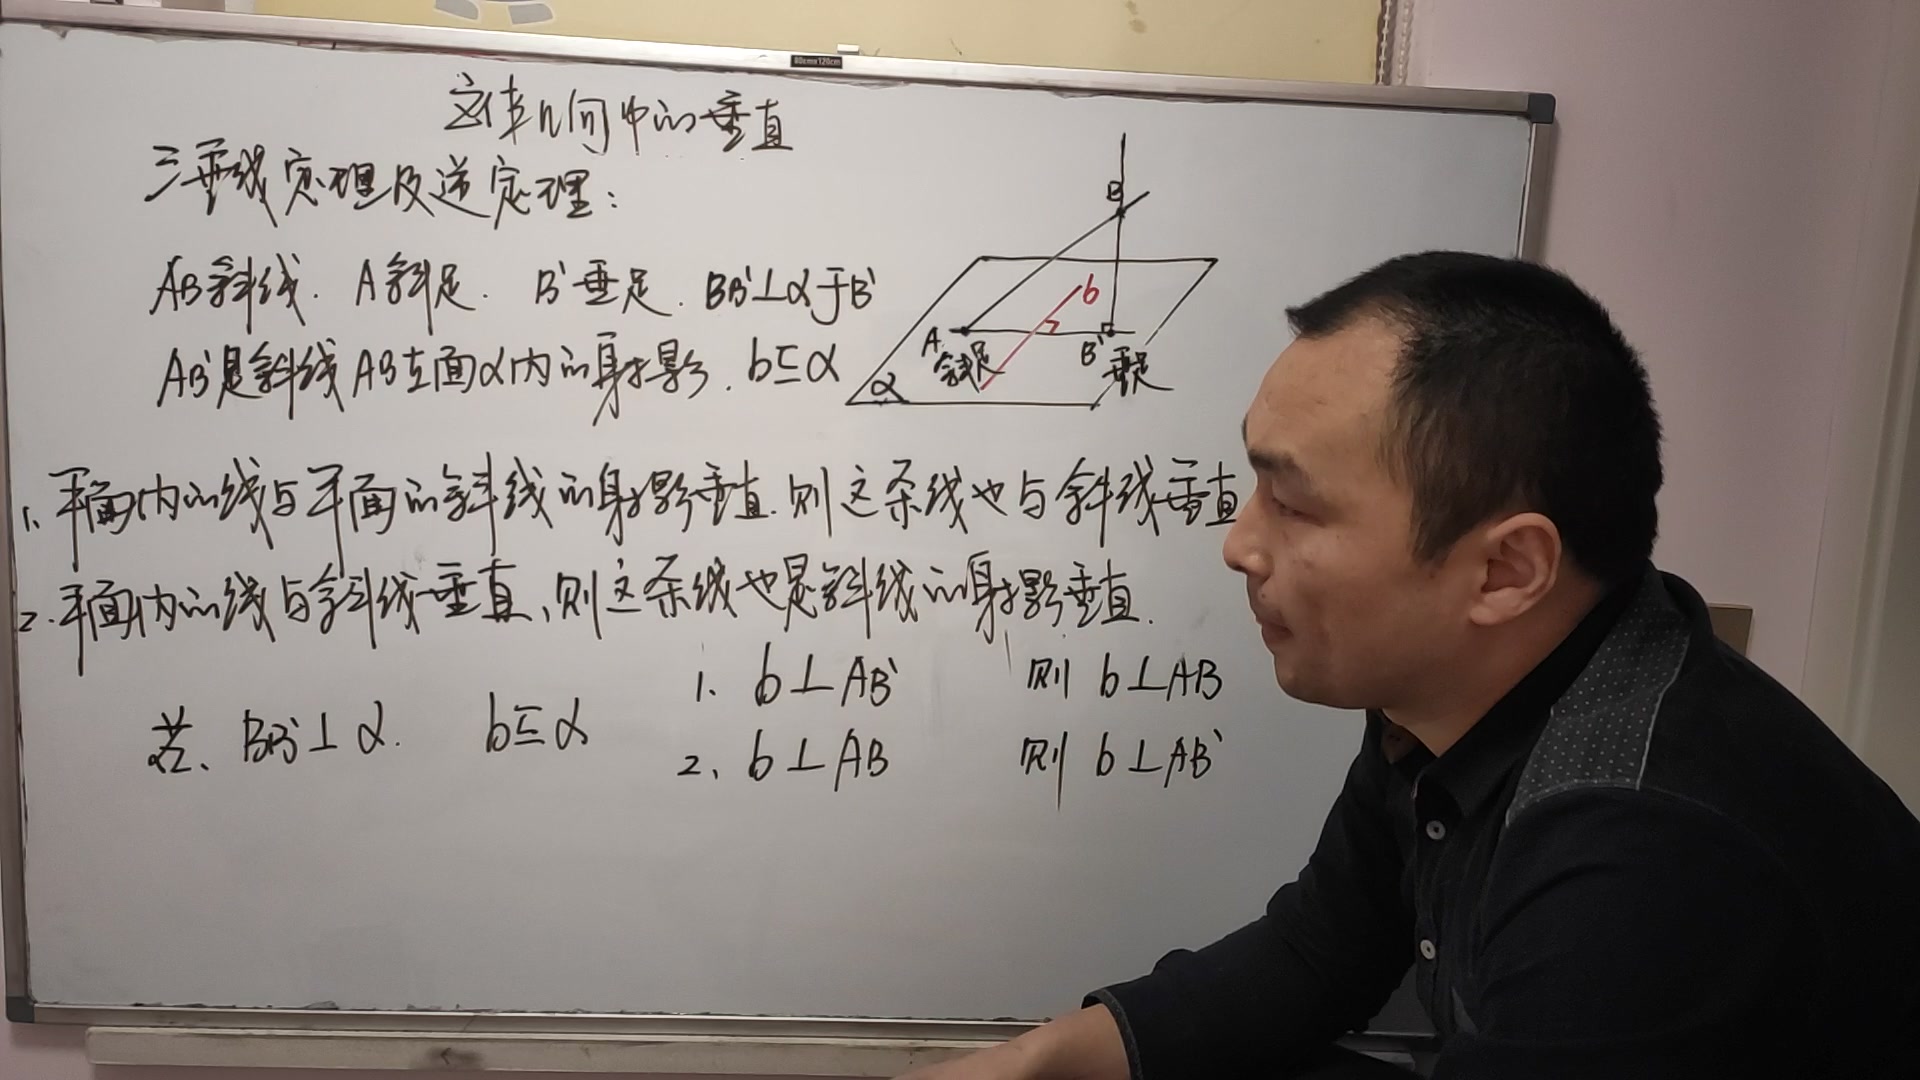 80cm×120cm
立体几何中的垂直
三垂线定理及逆定理:
AB斜线. A斜足. B'垂足. BB'⊥α于B'
AB'是斜线AB在面α内的射影. b⊆α
B
b
A
斜足
B'
垂足
α
1、平面内的线与平面的斜线的射影垂直.则这条线也与斜线垂直
2.平面内的线与斜线垂直、则这条线也是斜线的射影垂直.
若、BB'⊥α. b⊆α
1、b⊥AB' 则 b⊥AB
2、b⊥AB 则 b⊥AB'